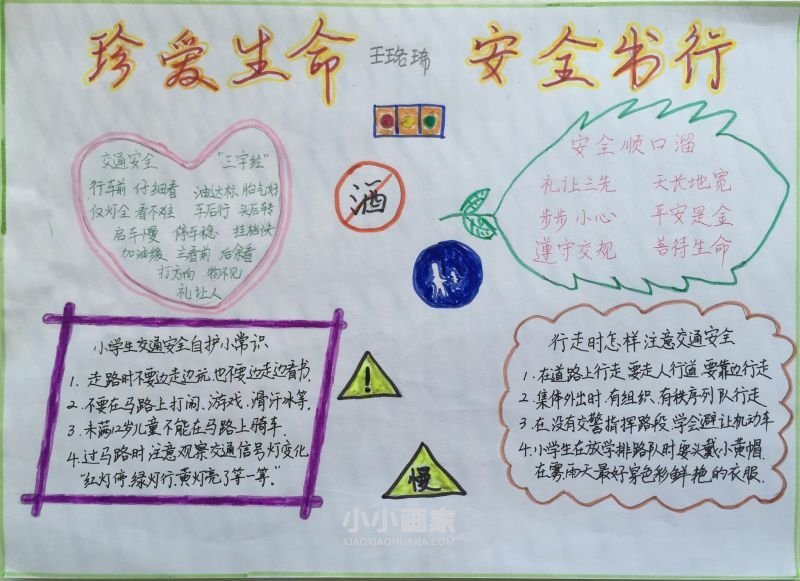 珍爱生命
王珞瑞
安全出行
交通安全 "三字经"
行车前 仔细看 油达标 胎气好
仪灯全 看不难 车后行 头后转
启车慢 停车稳 挂档快
加油缓 主看前 后余看
打方向 物不见
礼让人
酒
安全顺口溜
礼让三先 天长地宽
步步小心 平安是金
遵守交规 善待生命
小学生交通安全自护小常识
1. 走路时不要边走边玩,也不要边走边看书.
2. 不要在马路上打闹、游戏、滑汗冰等.
3. 未满12岁儿童不能在马路上骑车.
4. 过马路时注意观察交通信号灯变化
"红灯停,绿灯行,黄灯亮了等一等."
!
慢
行走时怎样注意交通安全
1. 在道路上行走,要走人行道,要靠边行走
2. 集体外出时,有组织、有秩序列队行走
3. 在没有交警指挥路段,学会避让机动车
4. 小学生在放学排路队时要头戴小黄帽
在雾雨天最好穿色彩鲜艳的衣服.
小小画家
XIAOXIAOHUAJIA.COM